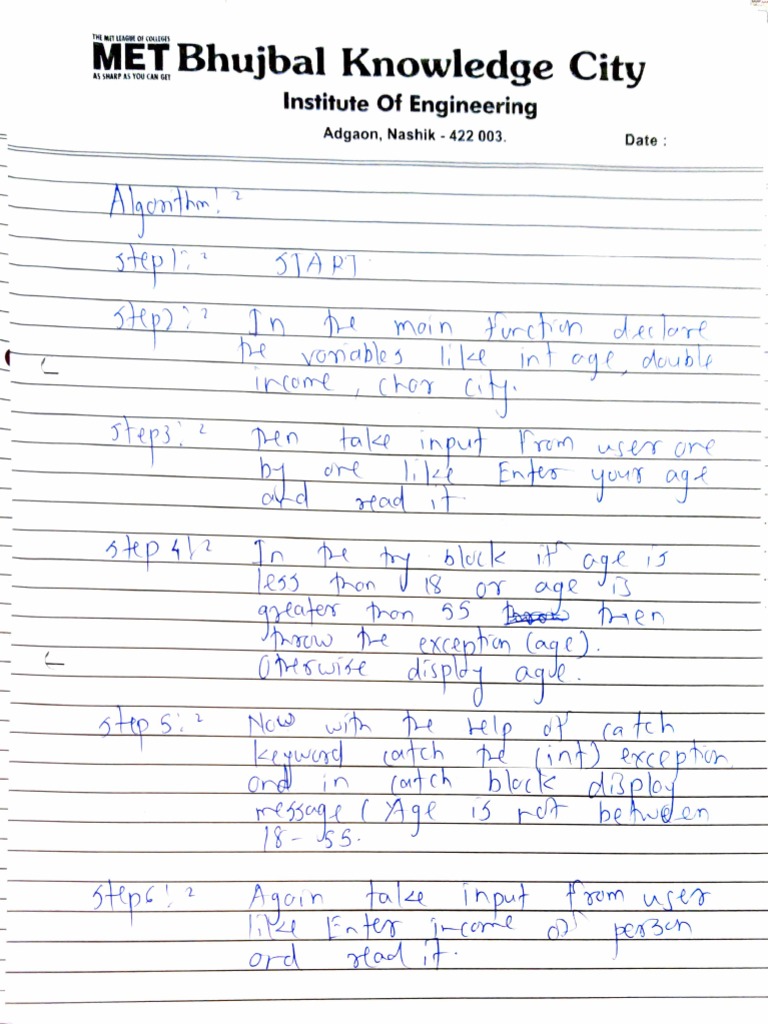 THE MET LEAGUE OF COLLEGES
MET Bhujbal Knowledge City
AS SHARP AS YOU CAN GET
Institute Of Engineering
Adgaon, Nashik - 422 003.
Date :
Algorithm :-
Step 1 :- START
Step 2 :- In the main function declare
the variables like int age, double
income, char city.
Step 3 :- Then take input from user one
by one like Enter your age
and read it
Step 4 :- In the try block if age is
less than 18 or age is
greater than 55 then
throw the exception (age).
Otherwise display ague.
Step 5 :- Now with the help of catch
keyword catch the (int) exception
and in catch block display
message ( Age is not between
18 - 55.
Step 6 :- Again take input from user
like Enter income of person
and read it.